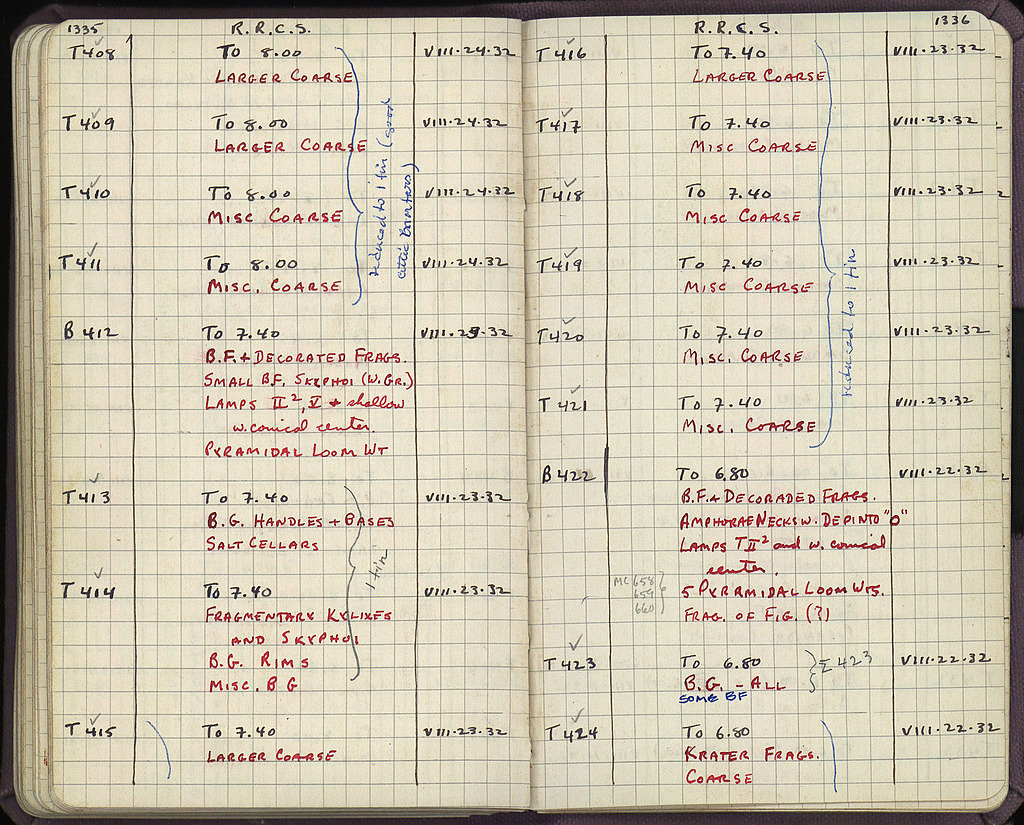 1335
R.R.C.S.
T408 To 8.00 VIII·24·32
LARGER COARSE
T409 To 8.00 VIII·24·32
LARGER COARSE
T410 To 8.00 VIII·24·32
MISC COARSE
T411 To 8.00 VIII·24·32
MISC. COARSE
reduced to 1 tin (good
B 412 To 7.40 VIII·23·32
B.F. + DECORATED FRAGS.
SMALL B.F. SKYPHOI (W.GR.)
LAMPS II², V + shallow
w. conical center.
PYRAMIDAL LOOM WT
T413 To 7.40 VIII·23·32
B.G. HANDLES + BASES
SALT CELLARS
T414 To 7.40 VIII·23·32
FRAGMENTARY KYLIXES
AND SKYPHOI
B.G. RIMS
MISC. B G
1 tin
T415 To 7.40 VIII·23·32
LARGER COARSE
1336
R.R.C.S.
T416 To 7.40 VIII·23·32
LARGER COARSE
T417 To 7.40 VIII·23·32
MISC COARSE
T418 To 7.40 VIII·23·32
MISC COARSE
T419 To 7.40 VIII·23·32
MISC COARSE
T420 To 7.40 VIII·23·32
MISC. COARSE
T421 To 7.40 VIII·23·32
MISC. COARSE
reduced to 1 tin
B422 To 6.80 VIII·22·32
B.F. + DECORADED FRAGS.
AMPHORAE NECKS W. DEPINTO "O"
LAMPS T II² and w. conical
center.
MC 658
659
660
5 PYRRMIDAL LOOM WTS.
FRAG. OF FIG. (?)
T423 To 6.80 Σ 423 VIII·22·32
B.G. - ALL
SOME BF
T424 To 6.80 VIII·22·32
KRATER FRAGS.
COARSE